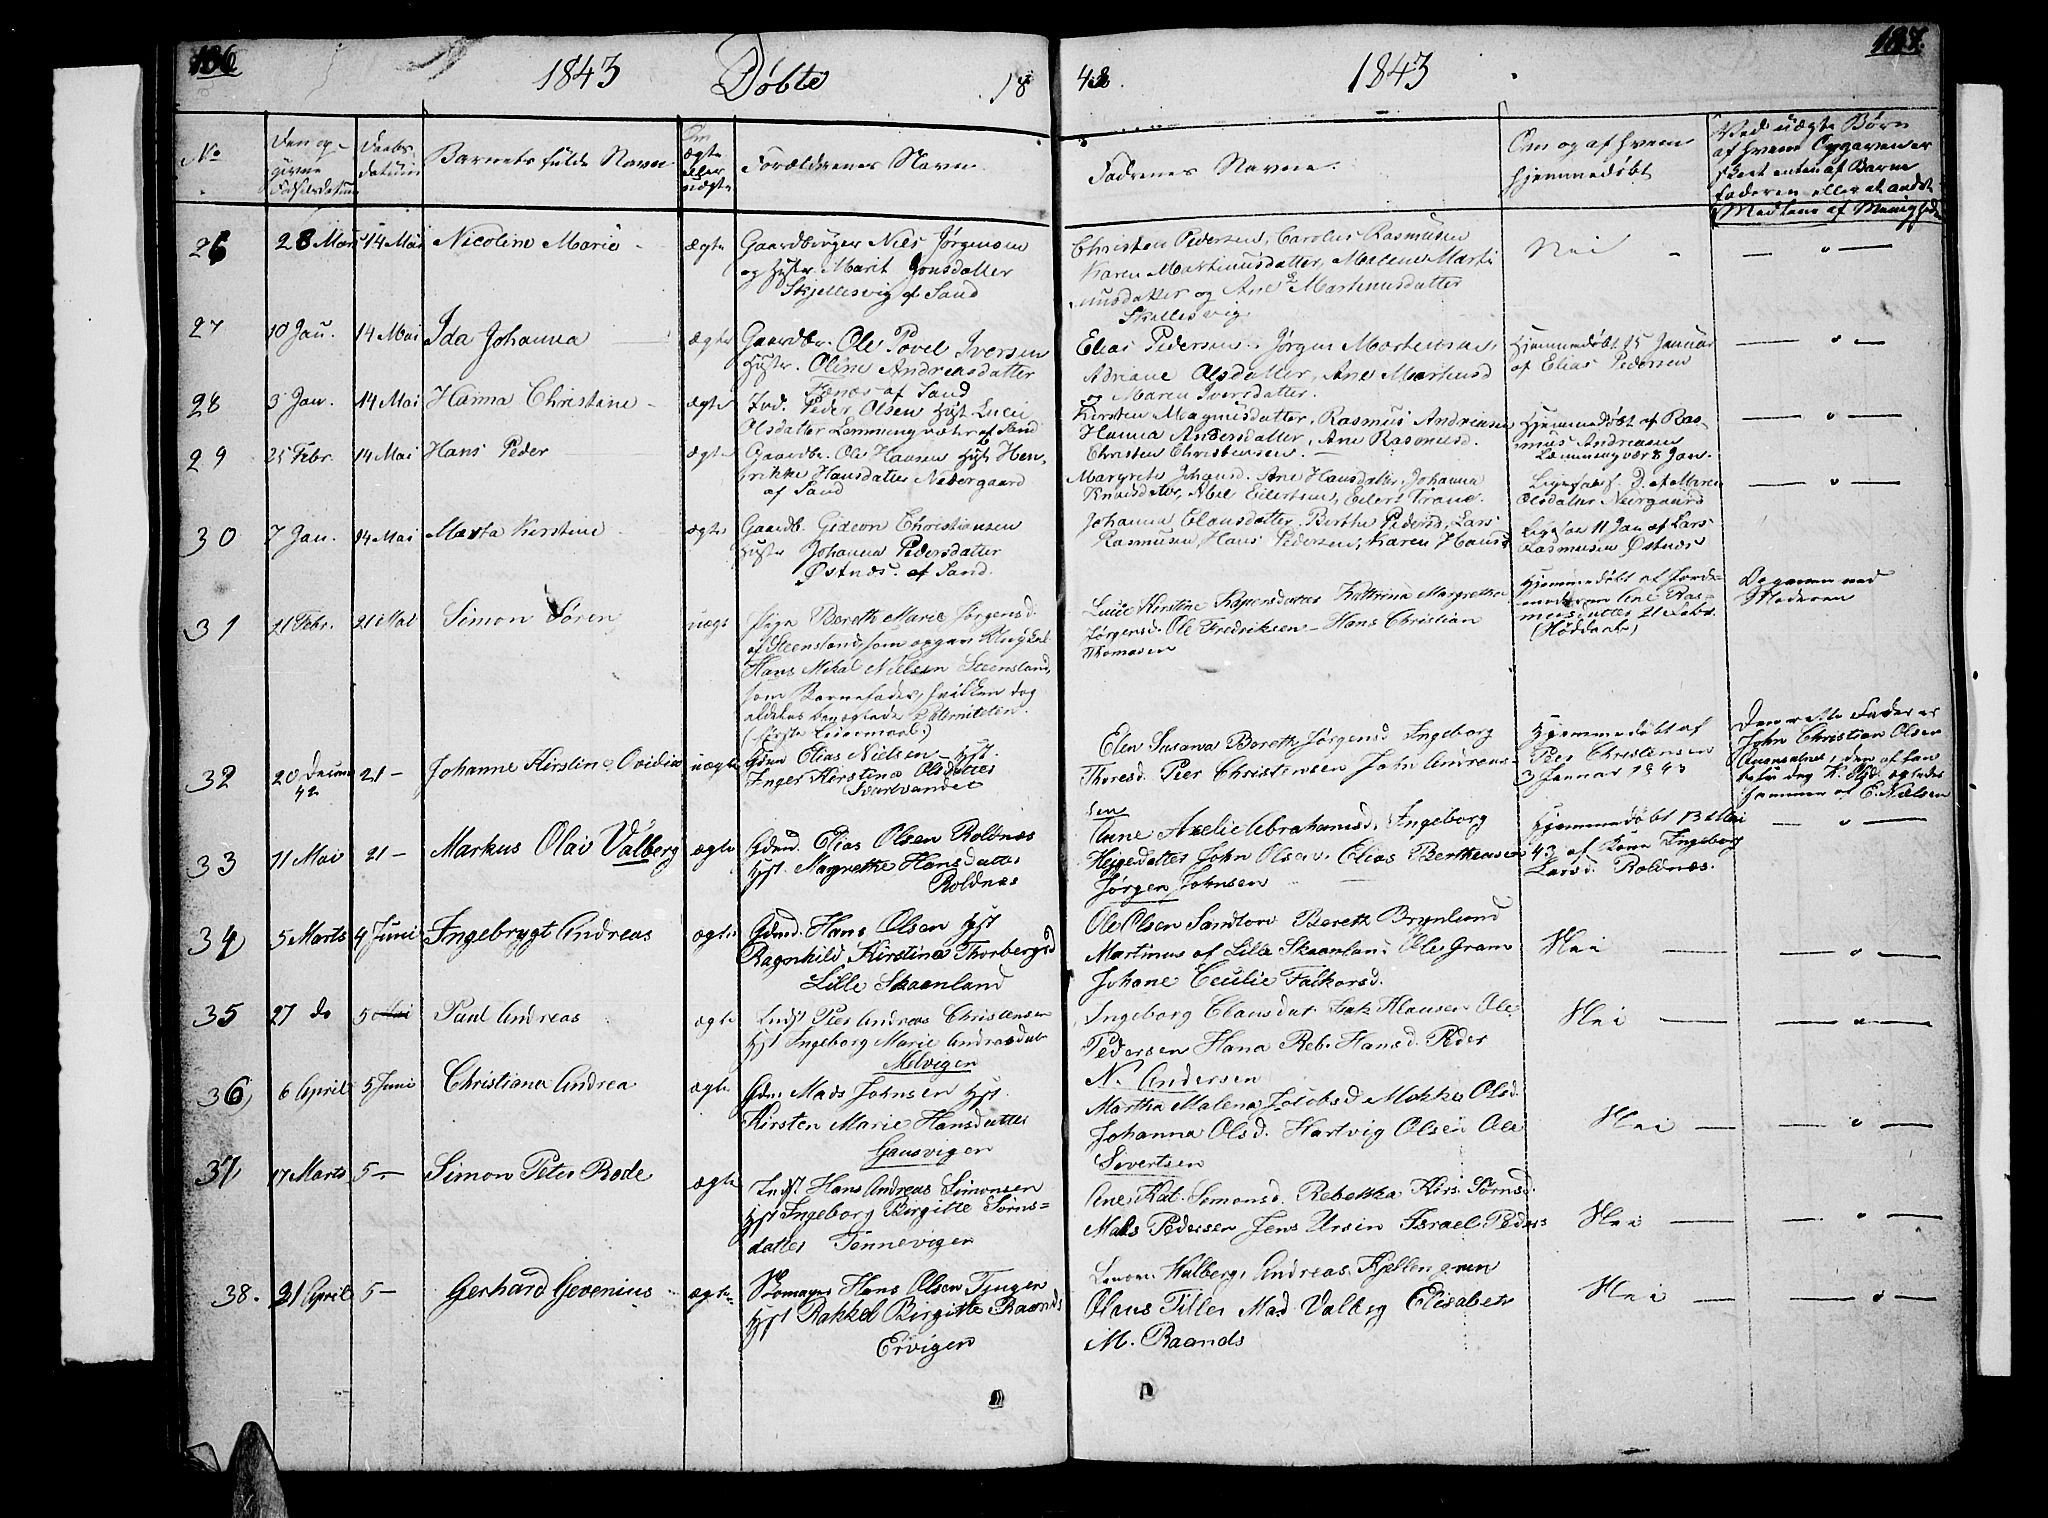 186
1843 Døbte 18
43. 1843
187.
No
Den opgivne Fødselsdatum
Daabsdatum
Barnets fulde Navn
Om ægte eller uægte
Forældrenes Navne
Fadrenes Navne.
Om og af hvem hjemmedøbt
Ved uægte Børn
af hvem Opgaven er
skeet enten af Barne
faderen eller et andet
Medlem af Menighede
26 28 Mars 14 Mai Nicoline Marie ægte Gaardbruger Niels Jørgensen
og Hustr. Marit Jonsdatter
Skjellesvig af Sand
Christen Pedersen, Carolus Rasmusen
Karen Martinusdatter, Malene Marti
nusdatter og Ane Martinusdatter
Skellesvig.
Nei — " —
27 10 Jan. 14 Mai Ida Johanna ægte Gaardbr. Ole Povel Iversen
Hustr. Oline Andreasdatter
af Sand
Elias Pedersen, Jørgen Mortensen,
Adriane Olsdatter, Ane Martinusd
og Maren Iversdatter.
Hjemmedøbt 15 Januar
af Elias Pedersen
— " —
28 3 Jan. 14 Mai Hanna Christine ægte Ind. Peder Olsen Hust. Lucie
Olsdatter Lemmingvær af Sand
Kirsten Magnusdatter, Rasmus Andreasen
Hanna Andersdatter, Ane Rasmusd.
Christen Christensen.
Hjemmedøbt af Ras-
mus Andreasen
Læmmingvær 8 Jan.
— " —
29 25 Febr. 14 Mai Hans Peder ægte Gaardbr. Ole Hansen Hust Hen-
rikke Hansdatter Nedergaard
af Sand
Margrete Johansd. Ane Hansdatter, Johanna
Knudsdatter, Abel Eilertsen, Eilert Krane.
af Maren
Olsdatter Neergaard
— " —
30 7 Jan. 14 Mai Marta Kirstine ægte Gaardb. Gideon Christiansen
Hustr Johanna Pedersdatter
Østnæs. af Sand.
Johanna Clausdatter, Berthe Pedersd, Lars
Rasmusen, Hans Pedersen, Karen Hansd
11 Jan af Lars
Rasmusen Østnæs
31 21 Febr. 21 Mai Simon Søren uægt Pige Bereth Marie Jørgensd.
af Steensland, som opgav Ungkal
Hans Mikal Nielsen Steensland,
som Barnefader, hvilken dog
aldeles benegtede Paterniteten.
(første Leiermaal.)
Lucie Kirstine Kaspersdatter Kathrina Margretha
Jørgensd. Ole Fredriksen – Hans Christian
Thomasen
Hjemmedøbt af Jorde-
moderen Ane Ras-
musdatter 21 Febr.
Opgaven ved
Moderen
32 20 Decembr 42 21 – Johanne Kirstine Ovidia uægte Gdm Elias Nielsen Hst.
Inger Kirstina Olsdatter
Svartvandet
Elen Susana Bereth Jørgensd Ingeborg
Thoresd. Peer Christensen John Andreas-
sen
Hjemmedøbt af
Peer Christensen
3 Januar 1843
Den rette Fader er
John Christian Olsen
33 11 Mai 21 – Markus Olai Valberg ægte Gdmd. Elias Olsen Roldnæs
Hst. Margrethe Hansdatter
Roldnæs
Anne Axelie Abrahamsd. Ingeborg
Heggedatter John Olsen. Elias Berthensen
Jørgen Johnsen
Hjemmedøbt 13 Mai
43 af Kone Ingeborg
Larsd. Roldnæs.
— " —
34, 5 Marts 4 Juni Ingebrygt Andreas ægte Gdmd. Hans Olsen Hst
Ragnhild Kirstina Thorbergsd
Lille Skaanland
Ole Olsen Sandtorv Bereth Brynlund
Martinus af Lille Skaanland Ole Gram
Johane Cecilie Falkorsd.
Nei — " —
35 27 do 5 Paul Andreas ægte Indst Peer Andreas Christensen
Hst Ingeborg Marie Andreasdat
Melvigen
Ingeborg Clausdat Isak Klausen Ole
Pedersen Hana Reb. Hansd. Peder
N. Andersen
Nei — " —
36, 6 April 5 Juni Christiana Andrea ægte Gdm. Mads Johnsen Hst.
Kirsten Marie Hansdatter
Gausvigen
Martha Malena Jacobsd Mokka Olsd.
Johanna Olsd. Hartvig Olsen Ole
Sivertsen
Nei — " —
37, 17 Marts 5 – Simon Peter Rode ægte Indst Hans Andreas Simonsen
Hst Ingeborg Birgitte Sørns=
datter Tennevigen
Ane Kat. Simonsd. Rebekka Kirs. Sørnsd.
Mads Pedersen Jens Ursin Israel Peders
Nei — " —
38. 21 April 5 – Gerhard Gevenius ægte Hans Olsen Tjugen
Hst Rakkel Birgitte Raands
Ervigen
Andreas Kjellengren
Olaus Tiller Mad Valberg Elisabet
M. Raands
Nei — " —